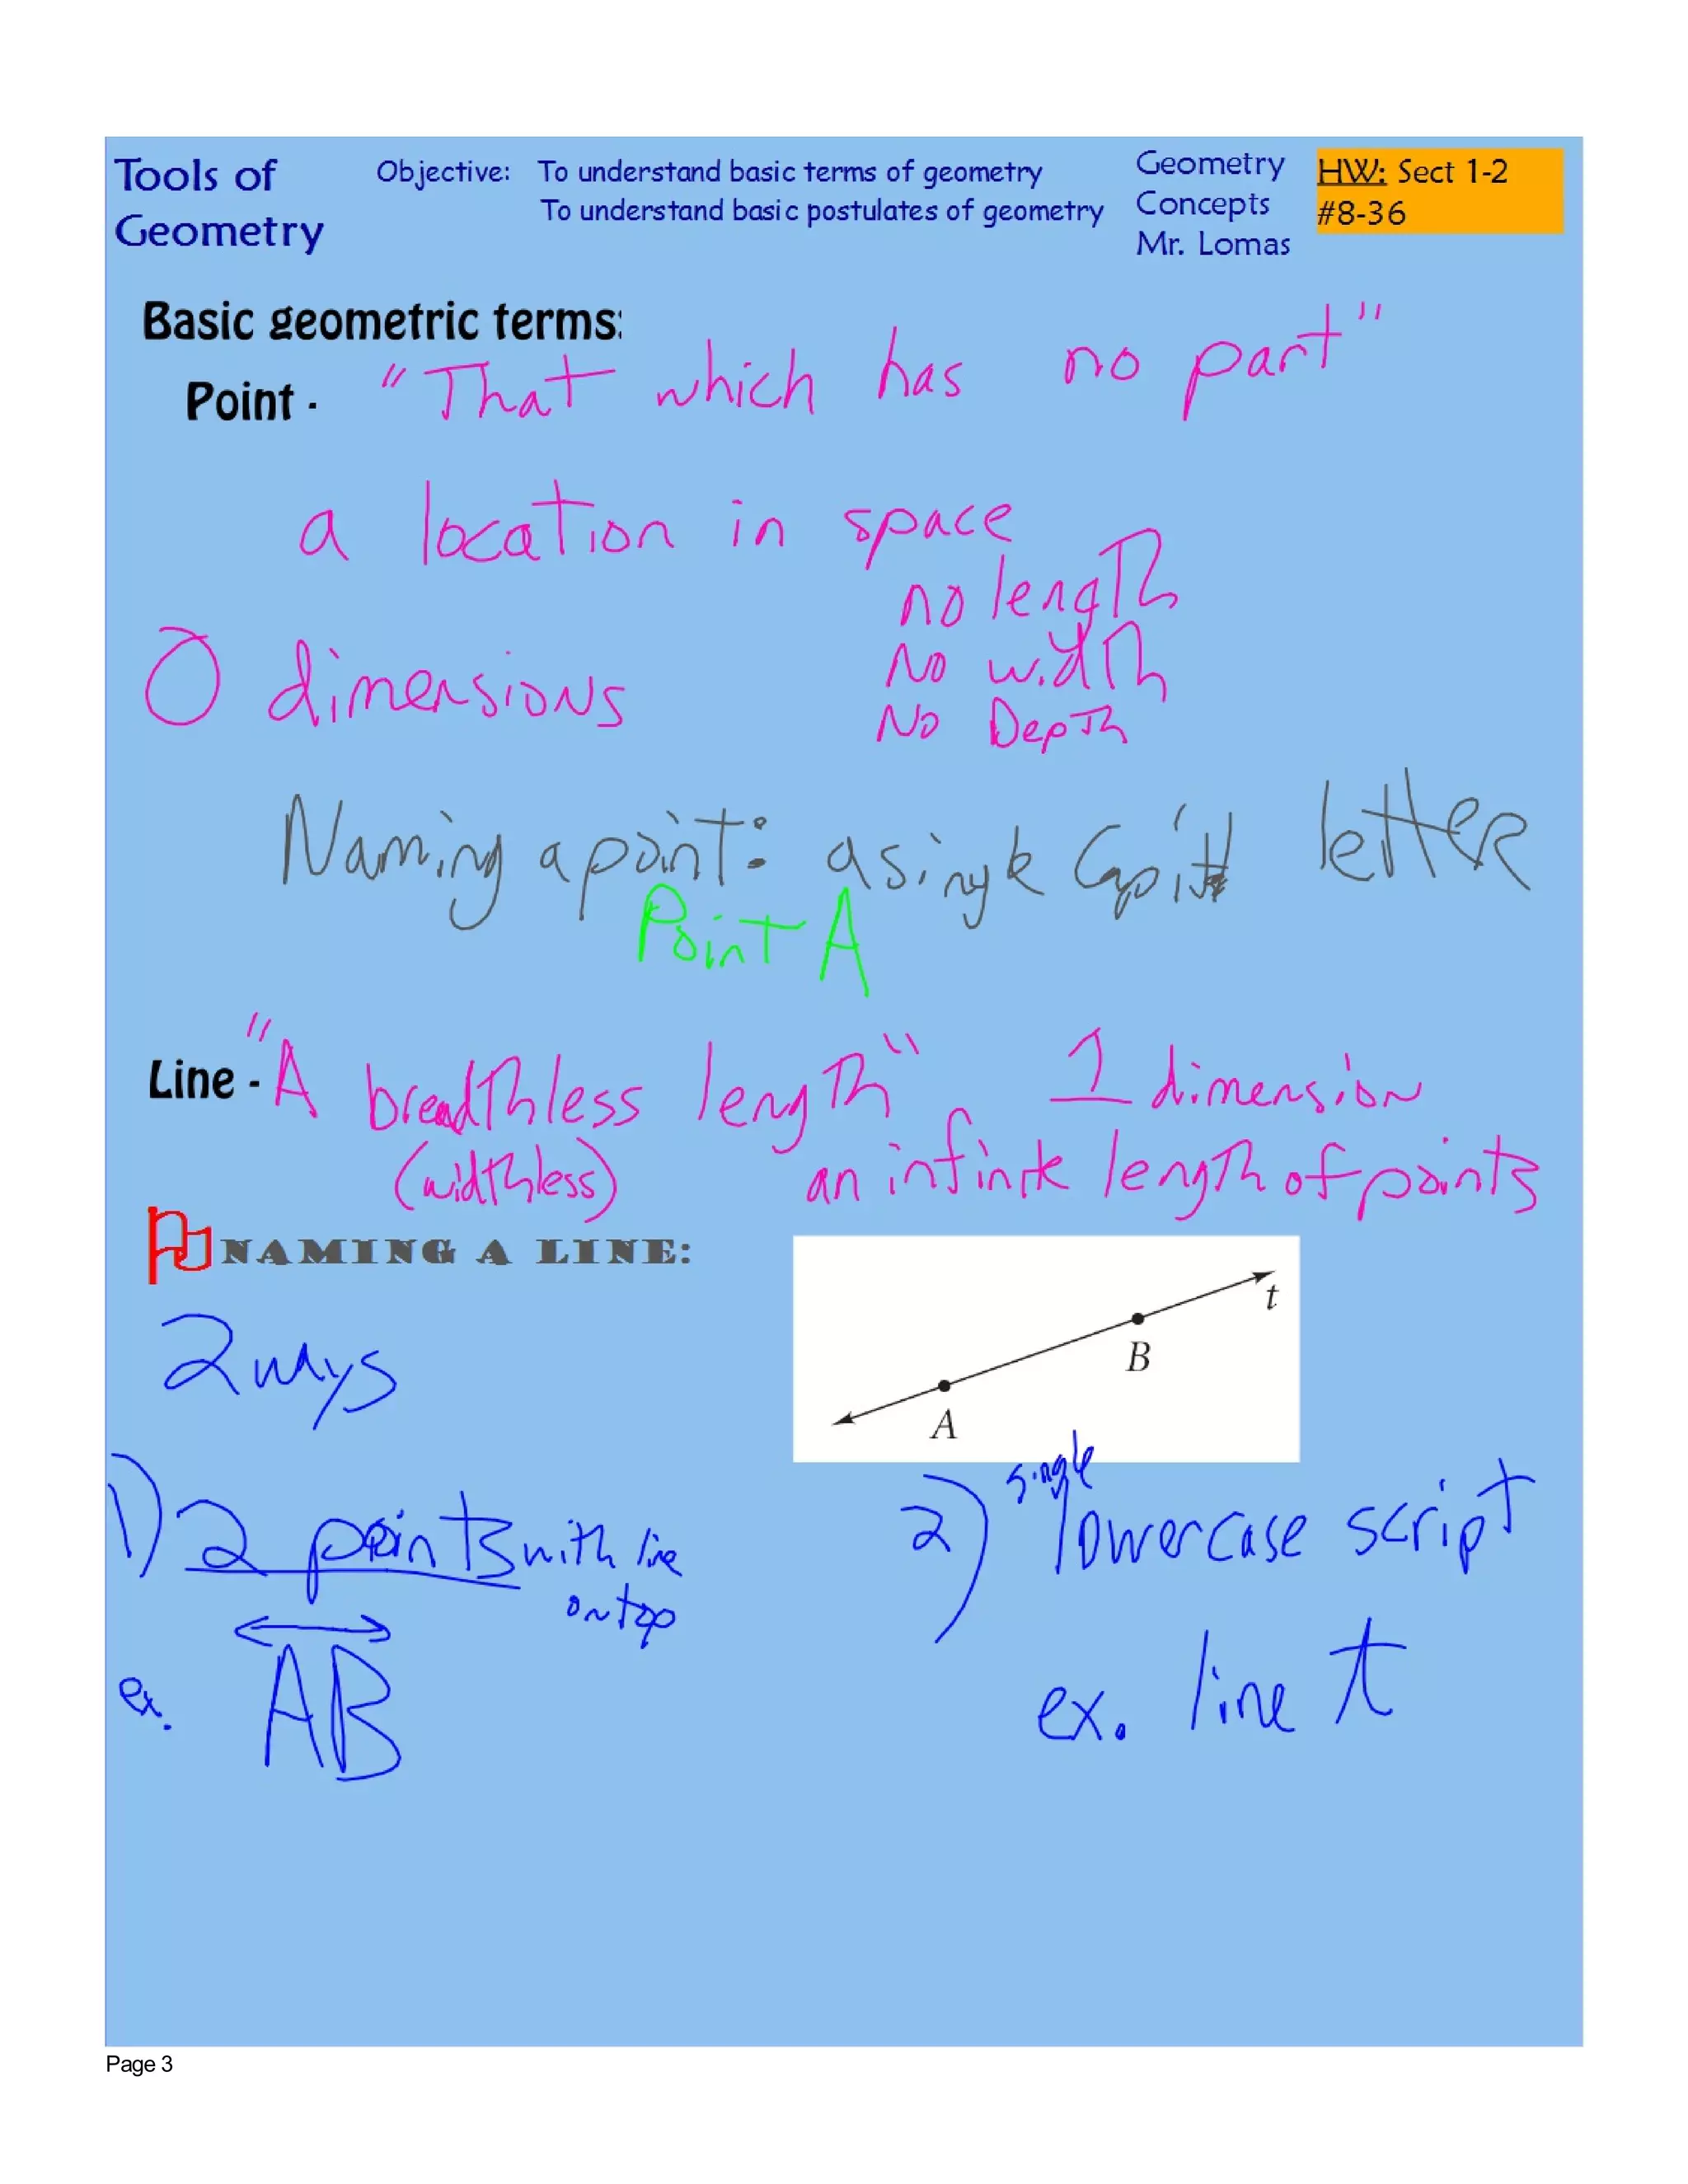 Tools of
Geometry
Objective: To understand basic terms of geometry
To understand basic postulates of geometry
Geometry
Concepts
Mr. Lomas
HW: Sect 1-2
#8-36
Basic geometric terms:
Point - "That which has no part"
a location in space
no length
No width
No Depth
0 dimensions
Naming a point: a single Capital letter
Point A
Line - "A breadthless length" 1 dimension
(widthless) an infinite length of points
NAMING A LINE:
t
B
A
2 ways
1) 2 points with line
on top
ex. AB
2) single lowercase script
ex. line t
Page 3